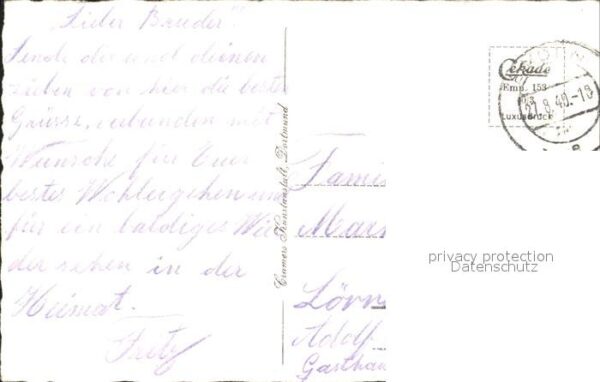 Lieber Bruder!
Sende dir und deinen
Lieben von hier die besten
Grüsse, verbunden mit
Wünsche für Euer
bestes Wohlergehen und
für ein baldiges Wie
dersehen in der
Heimat.
Fritz
Cramers Kunstanstalt, Dortmund
Cekade
Emp. 153
Luxusdruck
27.8.40.-19
Famil
Mar
Lörr
Adolf
Gasthau
privacy protection
Datenschutz